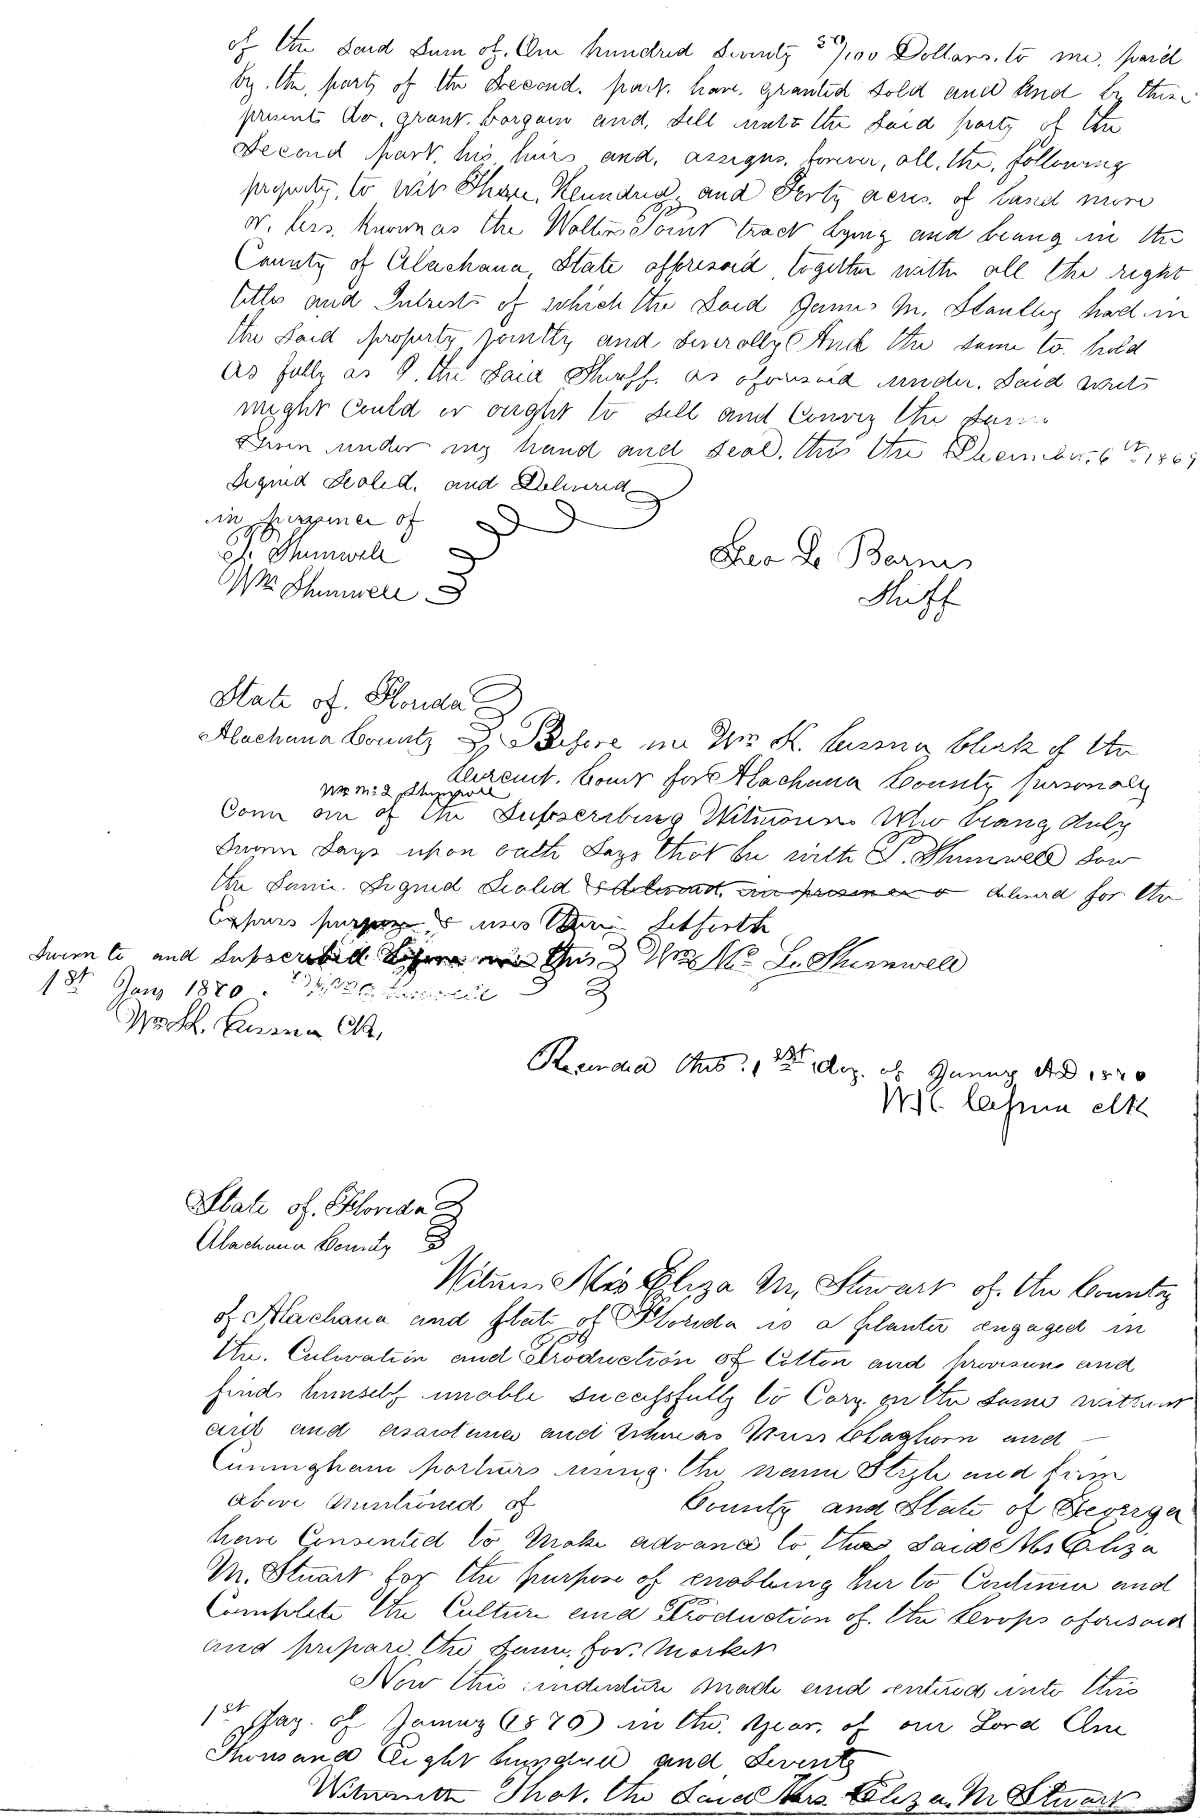 of the said sum of. One hundred seventy 50/100 Dollars. to me. paid
by. the. party of the second. part. have. granted sold and and by these
presents do. grant. bargain and. sell unto the said party of the
Second part. his. heirs and. assigns. forever, all. the. following
property. to wit Three. Hundred. and Forty acres. of Land more
or. less. known as the Walters Point tract lying and beang in the
County of Alachana, State afforesaid, together with all the right
titles and Intrests of which the said James M. Stanlley had in
the said property jointly and severally And the same to. hold
as fully as I. the said Sheriff. as aforesaid under. said writs
might could or ought to sell and Convey the same
Given under my hand and seal. this the December. 6th 1869
Signed Sealed. and Delivered
in presence of
P. Shumwell
Wm Shumwell
Geo L. Barnes
Shiff
State of. Florida
Alachana County Before me Wm K. Cessna Clerk of the
Circuit. Court for Alachana County personaly
Wm Mc L Shumwell
Come one of the Subscribing Witnesses Who beang duly
sworn says upon oath says that he with P. Shumwell saw
the same. signed sealed & delivered. in presence o delivered for the
Express purpose & uses therein setforth
Sworn to and Subscribed before me this Wm Mc L. Shumwell
1st Jany 1870.
Wm K. Cessna Clk,
Recorded this. 1st day. of Janury AD 1870
W K. Cessna clk
State of. Florida
Alachana County
Witness Mrs Eliza M, Stewart of. the County
of Alachana and State of Florida is a planter engaged in
the. Culovation and Production of Cotton and provisions and
finds himself unable successfully to Cary. on the same without
aid and assistance and whereas Claghorn and
Cuningham partners using. the name Style and firm
above mentioned of County and State of Georrga
have Consented to make advance to the said Mrs Eliza
M. Stuart for the purpose of enabling her to Continue and
Complete the Culture and Production of. the Croops aforesaid
and prepare. the same. for. market
Now this indenture made and entered into this
1st Day. of Janury (1870) in the. year. of our Lord One
Thousand Eight hundred and Seventy
Witnesseth That. the said Mrs. Eliza. M Stuart